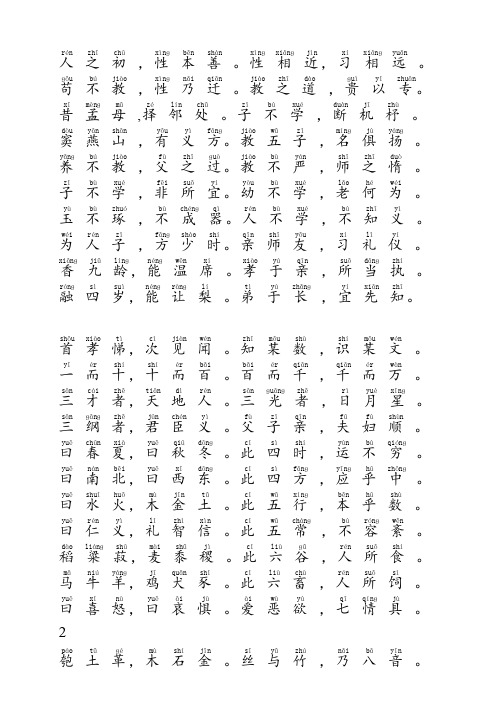 rén zhī chū xìng běn shàn xìng xiāng jìn xí xiāng yuǎn
人 之 初 ，性 本 善 。性 相 近，习 相 远 。
gǒu bú jiào xìng nǎi qiān jiào zhī dào guì yǐ zhuān
苟 不 教 ，性 乃 迁 。教 之 道 ，贵 以 专 。
xī mèng mǔ zé lín chǔ zǐ bù xué duàn jī zhù
昔 孟 母 ,择 邻 处 。子 不 学 ，断 机 杼 。
dòu yān shān yǒu yì fāng jiào wǔ zǐ míng jù yáng
窦 燕 山 ，有 义 方。教 五 子 ，名 俱 扬 。
yǎng bú jiào fù zhī guò jiào bù yán shī zhī duò
养 不 教 ，父 之 过。教 不 严 师 之 惰 。
zǐ bù xué fēi suǒ yí yòu bù xué lǎo hé wéi
子 不 学 ，非 所 宜。幼 不 学 ，老 何 为 。
yù bù zhuó bù chéng qì rén bù xué bù zhī yì
玉 不 琢 ，不 成 器。人 不 学 ，不 知 义 。
wéi rén zǐ fāng shào shí qīn shī yǒu xí lǐ yí
为 人 子 ，方 少 时。亲 师 友 ，习 礼 仪 。
xiāng jiǔ líng néng wēn xí xiào yú qīn suǒ dāng zhí
香 九 龄，能 温 席 。孝 于 亲 ，所 当 执 。
róng sì suì néng ràng lí tì yú zhǎng yí xiān zhī
融 四 岁，能 让 梨 。弟 于 长 ，宜 先 知。
shǒu xiào tì cì jiàn wén zhī mǒu shù shí mǒu wén
首 孝 悌，次 见 闻 。知 某 数，识 某 文 。
yī ér shí shí ér bǎi bǎi ér qiān qiān ér wàn
一 而 十，十 而 百 。百 而 千，千 而 万 。
sān cái zhě tiān dì rén sān guāng zhě rì yuè xīng
三 才 者，天 地 人 。三 光 者，日 月 星 。
sān gāng zhě jūn chén yì fù zǐ qīn fū fù shùn
三 纲 者，君 臣 义 。父 子 亲，夫 妇 顺 。
yuē chūn xià yuē qiū dōng cǐ sì shí yùn bù qióng
曰 春 夏，曰 秋 冬 。此 四 时，运 不 穷 。
yuē nán běi yuē xī dōng cǐ sì fāng yìng hū zhōng
曰 南 北，曰 西 东 。此 四 方，应 乎 中 。
yuē shuǐ huǒ mù jīn tǔ cǐ wǔ xíng běn hū shù
曰 水 火，木 金 土 。此 五 行，本 乎 数 。
yuē rén yì lǐ zhì xìn cǐ wǔ cháng bù róng wěn
曰 仁 义，礼 智 信 。此 五 常，不 容 紊 。
dào liáng shū mài shǔ jì cǐ liù gǔ rén suǒ shí
稻 粱 菽，麦 黍 稷 。此 六 谷，人 所 食 。
mǎ niú yáng jī quǎn shǐ cǐ liù chù rén suǒ sì
马 牛 羊，鸡 犬 豕 。此 六 畜，人 所 饲 。
yuē xǐ nù yuē āi jù ài wù yù qī qíng jù
曰 喜 怒，曰 哀 惧 。爱 恶 欲，七 情 具 。
2
páo tǔ gé mù shí jīn sī yǔ zhú nǎi bā yīn
匏 土 革，木 石 金 。丝 与 竹 ，乃 八 音 。